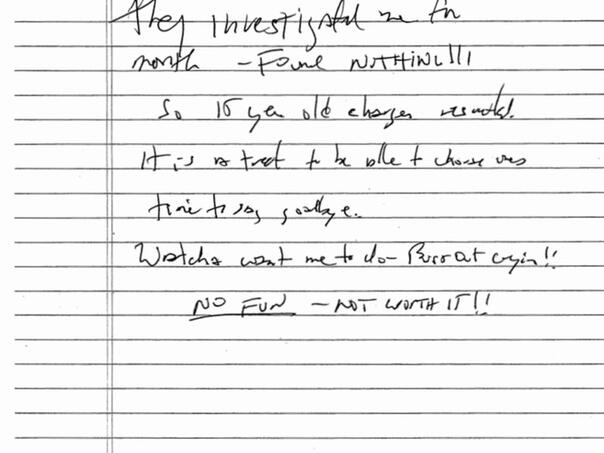 They investigated me for
month – Found NOTHING!!!
So year old charges resulted.
It is a treat to be able to choose ones
time to say goodbye.
Watcha want me to do – Bust out cryin!!
NO FUN – NOT WORTH IT!!